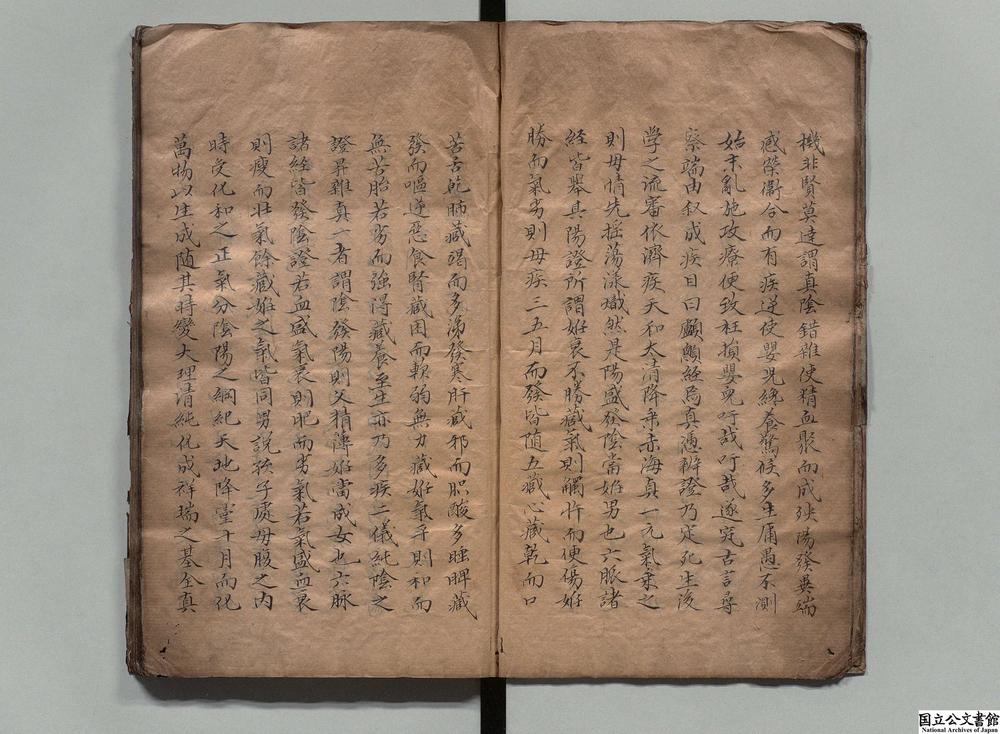 機非賢莫達謂真陰錯雜使精血聚而成殃陽發異端
惑榮衛合而有疾逆使嬰兒纔養驚候多生庸愚不測
始末亂施攻療便致枉損嬰兒吁哉吁哉遂究古言尋
察端由叙成疾目曰顱顖經焉真憑辨證乃定死生後
學之流審依濟疾天和太清降乘赤海真一元氣乘之
則母情先搖蕩漾熾然是陽盛發陰當姙男也六脈諸
經皆舉其陽證所謂姙衰不勝藏氣則觸忤而便傷姙
勝而氣劣則母疾三五月而發皆隨五藏心藏乾而口
苦舌乾肺藏渴而多涕發寒肝藏邪而眂酸多睡脾藏
發而嘔逆惡食腎藏困而軟弱無力藏姙氣平則和而
無苦胎若劣而強得藏養至生亦乃多疾二儀純陰之
證昇雜真一者謂陰發陽則父精薄姙當成女也六脉
諸經皆發陰證若血盛氣衰則肥而劣氣若氣盛血衰
則瘦而壯氣餘藏姙之氣皆同男說孩子處母腹之內
時受化和之正氣分陰陽之綱紀天地降靈十月而化
萬物以生成隨其時變大理清純化成祥瑞之基全真
国立公文書館
National Archives of Japan